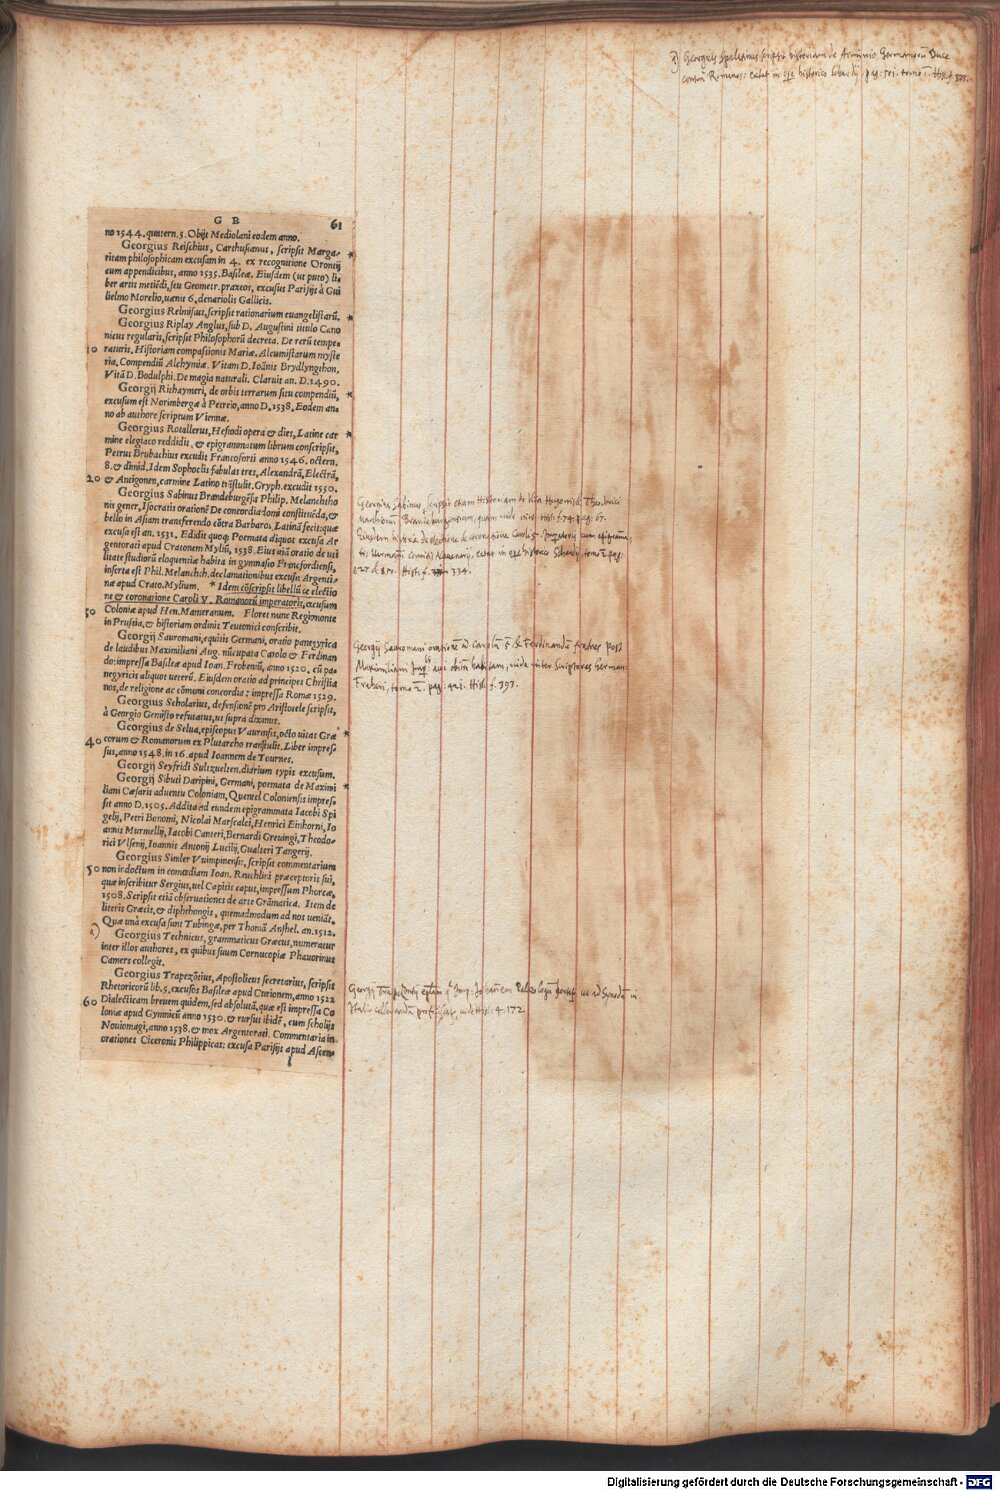 a) Georgius Spalatinus scripsit historiam de Arminio Germanorũ Duce
contra Romanos: extat in historico Schardij pag: tomo 1. Hist. f. 333.
G B 61
no 1544. quatern. 5. Obijt Mediolani eodem anno.
Georgius Reischius, Carthusianus, scripsit Marga- *
ritam philosophicam excusam in 4. ex recognitione Orontij
cum appendicibus, anno 1535. Basileæ. Eiusdem (ut puto) li-
ber artis metiẽdi, seu Geometr. praxeos, excusus Parisijs à Gui
lielmo Morelio, uænit 6. denariolis Gallicis.
Georgius Relmisius, scripsit rationarium euangelistarũ. *
Georgius Riplay Anglus, sub D. Augustini titulo Cano
nicus regularis, scripsit Philosophorũ decreta. De rerũ tempe-
10 raturis. Historiam compassionis Mariæ. Alcumistarum myste
ria. Compendiũ Alchymiæ. Vitam D. Ioãnis Brydlyngthon.
Vitã D. Bodulphi. De magia naturali. Claruit an. D. 1490.
Georgij Rithaymeri, de orbis terrarum situ compendiũ, *
excusum est Norimbergæ à Petreio, anno D. 1538. Eodem an-
no ab authore scriptum Viennæ.
Georgius Rotallerus, Hesiodi opera & dies, Latine car *
mine elegiaco reddidit, & epigrammatum librum conscripsit,
Petrus Brubachius excudit Francoforti anno 1546. octern.
8. & dimid. Idem Sophoclis fabulas tres, Alexandrã, Electrã,
20 & Antigonen, carmine Latino trãstulit. Gryph. excudit 1550.
Georgius Sabinus Brandeburgẽsis Philip. Melanchtho
nis gener, Isocratis orationẽ De concordia domi constituẽda, &
bello in Asiam transferendo cõtra Barbaros, Latinã fecit: quæ
excusa est an. 1531. Edidit quoq; Poemata aliquot excusa Ar
gentorati apud Cratonem Myliũ, 1538. Eius uiã oratio de uti
litate studiorũ eloquentiæ habita in gymnasio Francfordiensi,
inserta est Phil. Melanchth. declamationibus excusis Argenti-
næ apud Crato. Mylium. * Idem cõscripsit libellũ de electio
ne & coronatione Caroli V. Romanorũ imperatoris, excusum
30 Coloniæ apud Hen. Mameranum. Floret nunc Regiomonte
in Prussia, & historiam ordinis Teutonici conscribit.
Georgij Sauromani, equitis Germani, oratio panegyrica
de laudibus Maximiliani Aug. nũcupata Carolo & Ferdinan
do: impressa Basileæ apud Ioan. Frobeniũ, anno 1520. cũ pa-
negyricis aliquot ueterũ. Eiusdem oratio ad principes Christia
nos, de religione ac cõmuni concordia: impressa Romæ 1529.
Georgius Scholarius, defensionẽ pro Aristotele scripsit,
à Georgio Gemisto refutatus, ut supra diximus.
Georgius de Selua, episcopus Vaurensis, octo uitas Græ *
40 corum & Romanorum ex Plutarcho transtulit. Liber impres-
sus, anno 1548. in 16. apud Ioannem de Tournes.
Georgij Seyfridi Sultzuelten. diarium typis excusum.
Georgij Sibuti Daripini, Germani, poemata de Maximi *
liani Cæsaris aduentu Coloniam, Quentel Coloniensis impres-
sit anno D. 1505. Addita ad eundem epigrammata Iacobi Spi
gelij, Petri Bonomi, Nicolai Marscalci, Henrici Einhorni, Io
annis Murmellij, Iacobi Canteri, Bernardi Greuingi, Theodo-
rici Vlsenij, Ioannis Antonij Lucilij, Gualteri Tangerij.
Georgius Simler Vuimpinensis, scripsit commentarium
50 non indoctum in comœdiam Ioan. Reuchlini præceptoris sui,
quæ inscribitur Sergius, uel Capitis caput, impressum Phorcæ,
1508. Scripsit etiã obseruationes de arte Grãmatica. Item de
literis Græcis, & diphthongis, quemadmodum ad nos ueniãt.
Quæ unà excusa sunt Tubingæ, per Thomã Anshel. an. 1512.
a) Georgius Technicus, grammaticus Græcus, numeratur
inter illos authores, ex quibus suum Cornucopiæ Phauorinus
Camers collegit.
Georgius Trapezõtius, Apostolicus secretarius, scripsit
Rhetoricorũ lib. 5. excusos Basileæ apud Curionem, anno 1522
60 Dialecticam breuem quidem, sed absolutã, quæ est impressa Co
loniæ apud Gymnicũ anno 1530. & rursus ibidẽ, cum scholijs
Nouiomagi, anno 1538. & mox Argentorati. Commentaria in
orationes Ciceronis Philippicas: excusa Parisijs apud Ascen-
Georgius Sabinus scripsit etiam Historiam de Vita Hugonis & Theodorici
marchionum Brandeburgensium, quam vide Hist: f. 74. pag: 67.
Eiusdem historia de electione & coronatione Caroli 5. Imperatoris cum epigramma-
tis Hermanni Comitis Neuenarij, extat in historico Schardij, tomo 2. pag:
Hist: f. 334.
Georgij Sauromani orationẽ ad Carolũ 5. & Ferdinandũ fratres post
Maximiliani Imp: aui obitũ habitam, vide inter Scriptores German:
Freheri, tomo 2. pag: 421. Hist: f. 393.
Georgij Trapezuntij ad Imp: Johannem Palæologum ut ad Synodũ in
Italia celebrandã proficiscatur, vide Hist: 4. 172.